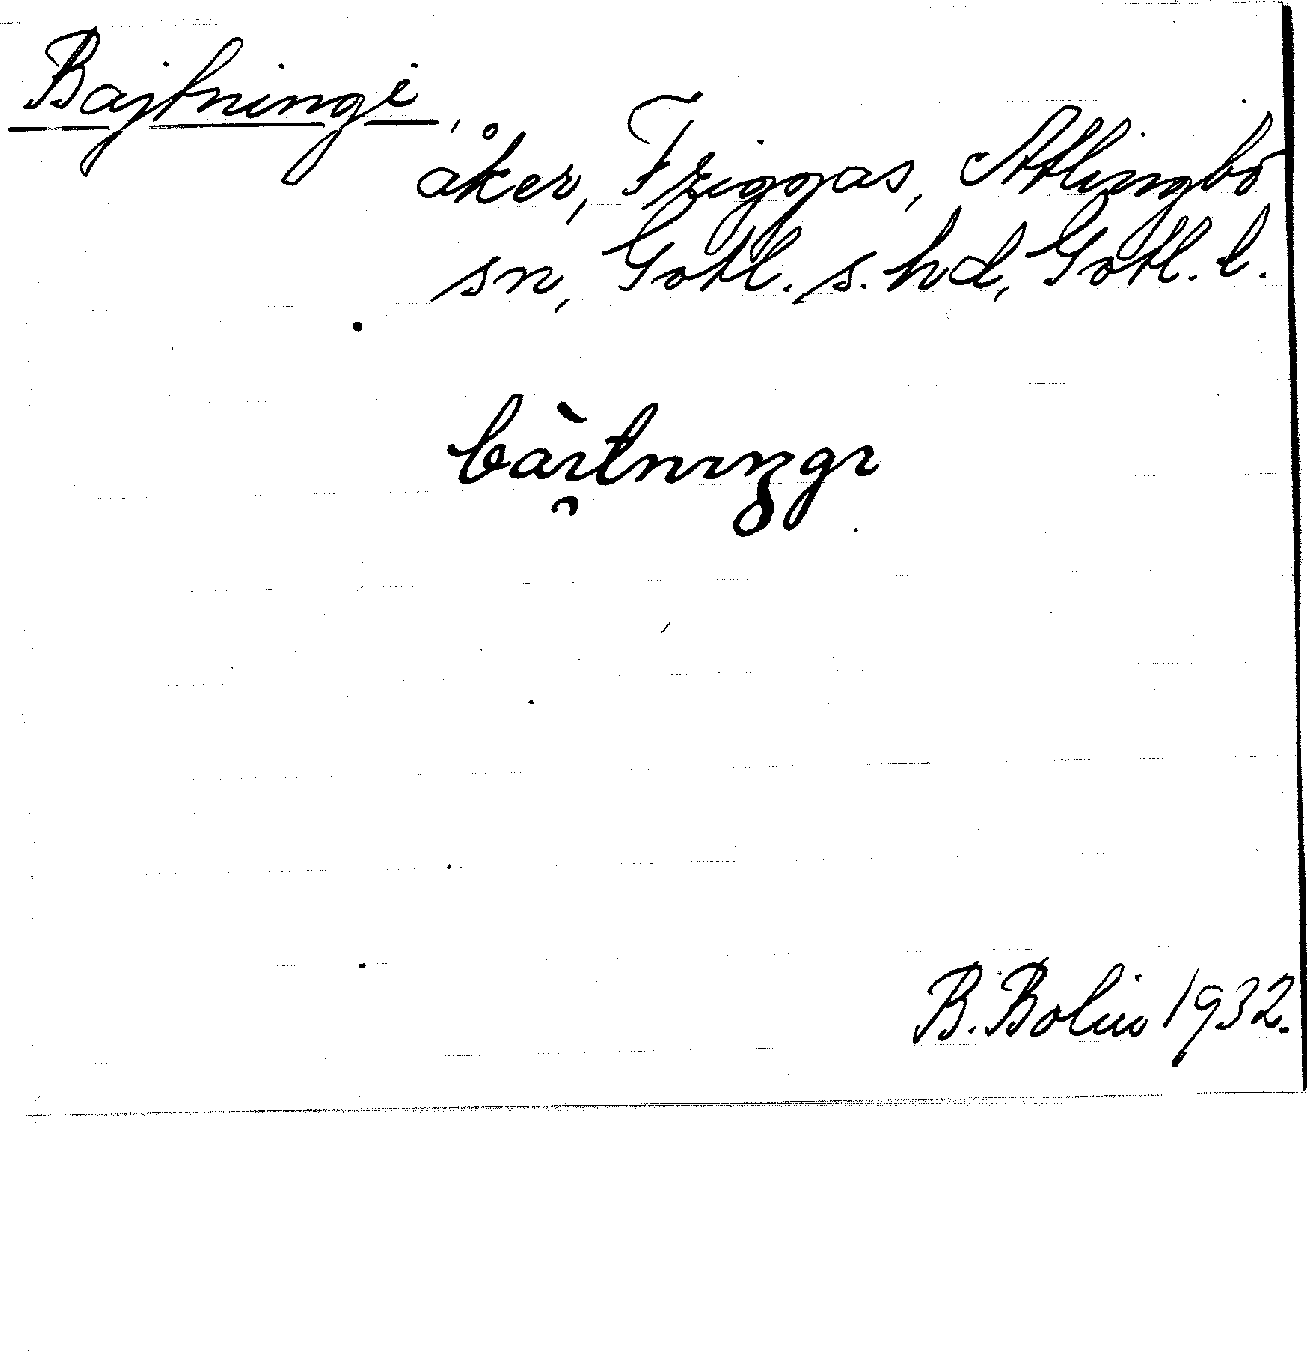 Bajtningi,
åker, Friggas, Atlingbo
sn, Gotl. s. hd, Gotl. l.
bàɪ̯tnɪŋgɪ
B. Bolin 1932.